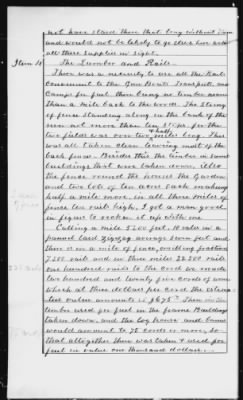 not have staid there that long without them
and would not be likely to go there here with
all there Supplies in sight.
Item 10 The Lumber and Rails.
There was a necessity to use all the Rails
convenient to the Gun Boats Transports and
Camps for fuel there being no timber nearer
than a mile back to the woods. The string
of fence standing along on the bank of the
river not more than ten steps for the
two fields was over two & half miles long. That
was all taken clean leaving most of the
back fence. Besides this the lumber in some
buildings that were taken down. Also
the fence round the house the Garden
and two lots of ten acres each making
half a mile more, in all three miles of
fence ten rails high. I got a man good
in figures to reckon it up with me
Calling a mile 5200 feet. 10 rails in a
pannel laid zigzag average seven feet and
there is in a mile of fence, omitting fractions
7,500 rails and in three miles 22,500 rails
one hundred rails to the cord we made
two hundred and twenty five cords of wood
which at three dollars per cord the estima-
ted value amounts is $675.00 Then
timber used for fuel in the frame Buildings
taken down and the log house and barns
would amount to 75 cords or more, so
that altogether there was taken & used for
fuel in value one thousand dollars